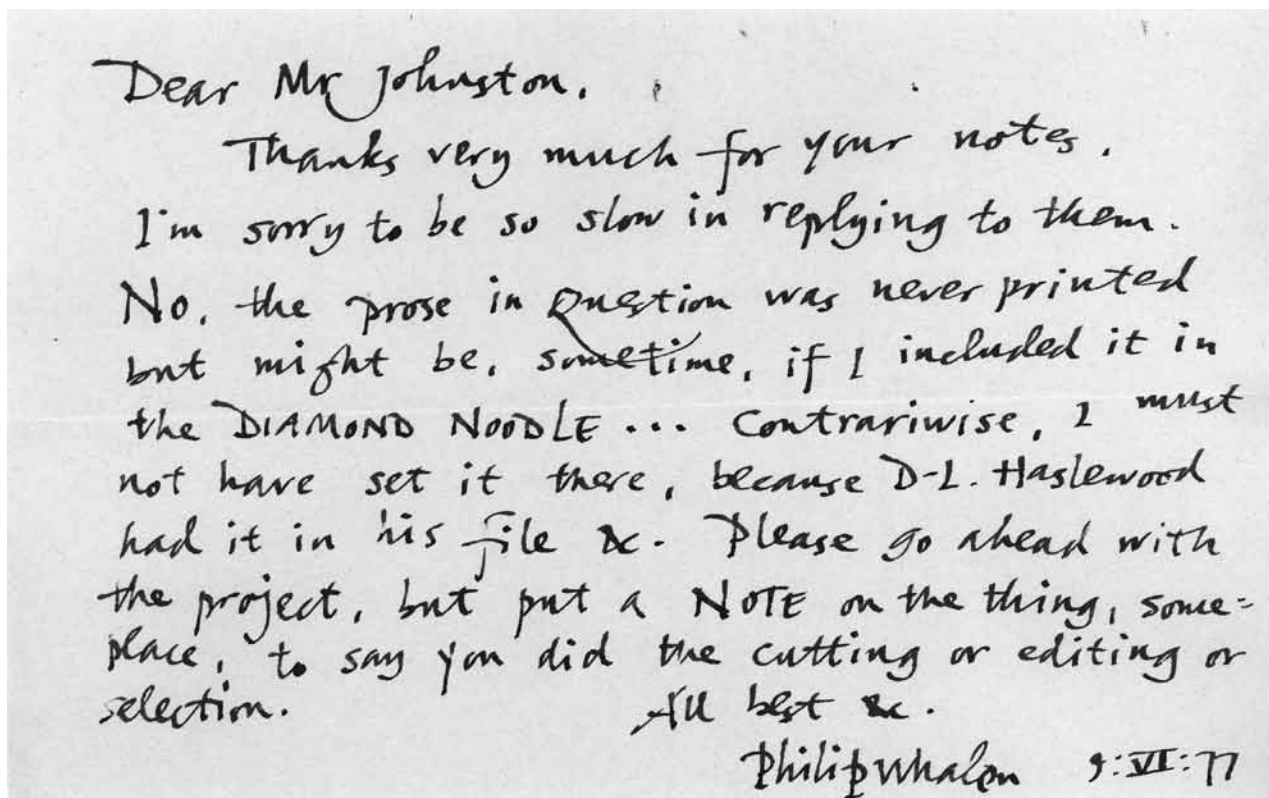 Dear Mr Johnston,
Thanks very much for your notes.
I'm sorry to be so slow in replying to them.
No, the prose in question was never printed
but might be, sometime, if I included it in
the DIAMOND NOODLE ... Contrariwise, I must
not have set it there, because D-L. Haslewood
had it in his file &c. Please go ahead with
the project, but put a NOTE on the thing, some=
place, to say you did the cutting or editing or
selection.
All best &c.
Philip Whalen 9:VI:77